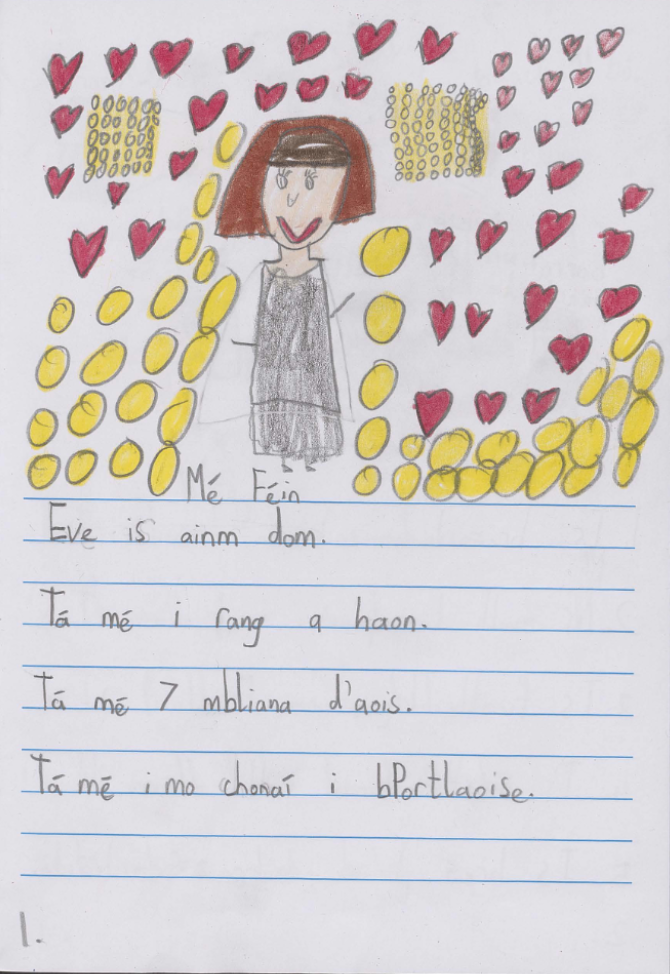 Mé Féin
Eve is ainm dom.
Tá mé i rang a haon.
Tá mé 7 mbliana d'aois.
Tá mé i mo chonaí i bPortlaoise.
1.